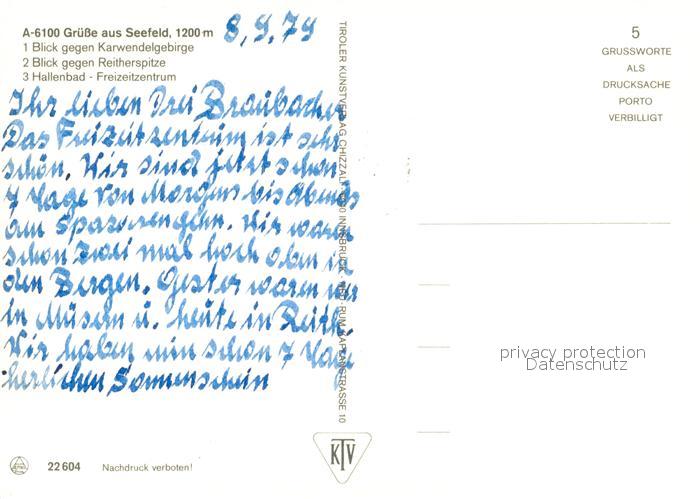 A-6100 Grüße aus Seefeld, 1200 m
8.9.79
1 Blick gegen Karwendelgebirge
2 Blick gegen Reitherspitze
3 Hallenbad - Freizeitzentrum
Ihr lieben Drei Braubacher
Das Freizeitzentrum ist sehr
schön. Wir sind jetzt schon
7 Tage von Morgens bis Abends
am Spazierengehn. Wir waren
schon zwei mal hoch oben in
den Bergen. Gester waren wir
in Müsern u. heute in Reith.
Wir haben nun schon 7 Tage
herlichen Sonnenschein
TIROLER KUNSTVERLAG CHIZZALI INNSBRUCK
5
GRUSSWORTE
ALS
DRUCKSACHE
PORTO
VERBILLIGT
privacy protection
Datenschutz
KTV
22 604 Nachdruck verboten!